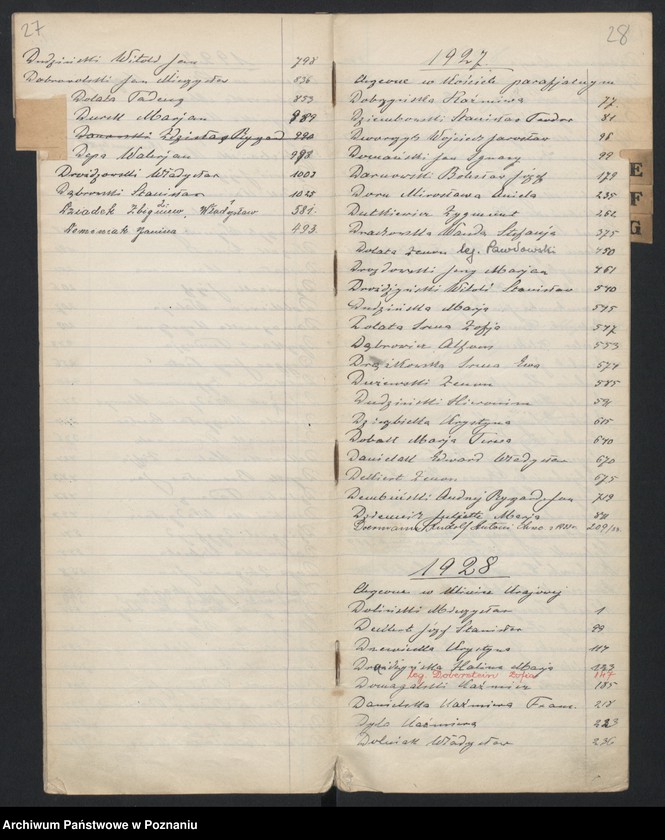 27
Dudziński Witold Jan 798
Dobrowolski Jan Mieczysław 836
Dolata Tadeusz 853
Durek Marjan 989
Ryszard 990
Depa Walerjan 998
Drożdżowski Władysław 1003
Dąbrowski Stanisław 1025
Dziadek Zbigniew Władysław 581
Janina 493
28
1927
Chrzcone w Kościele parafjalnym
Kaźmiera 77
Dziembowski Stanisław Teodor 81
Dworczyk Wojciech Jarosław 98
Domański Jan Ignacy 99
Darnowski Bolesław Józef 179
Dorn Mirosława Aniela 235
Dutkiewicz Zygmunt 262
Wanda Stefanja 375
Dolata Zenon leg. Pawłowski 450
Drozdowski Jerzy Marjan 461
Drożdżyński Witold Stanisław 540
Dudzińska Marja 545
Dolata Irena Zofja 547
Dąbrowicz Alfons 553
Drążkowska Irena Ewa 574
Dużewski Zenon 585
Dudziński Hieronim
Krystyna 615
Marja Teresa 640
Danielak Edward Władysław 670
Delkert Zenon 675
Dembiński Andrzej Ryszard Jan 719
Juljetta Marja
Rudolf Antoni 209
1928
Chrzcone w Klinice Krajowej
Doliński Mieczysław 1
Józef Stanisław 99
Krystyna 117
Drożdżyńska Halina Marja 123
leg. Doberstein Zofia 147
Domagalski Kaźmierz 185
Danielska Kaźmiera Franc. 218
Dyla Kaźmiera 223
Dolniak Władysław 236
E
F
G
Archiwum Państwowe w Poznaniu